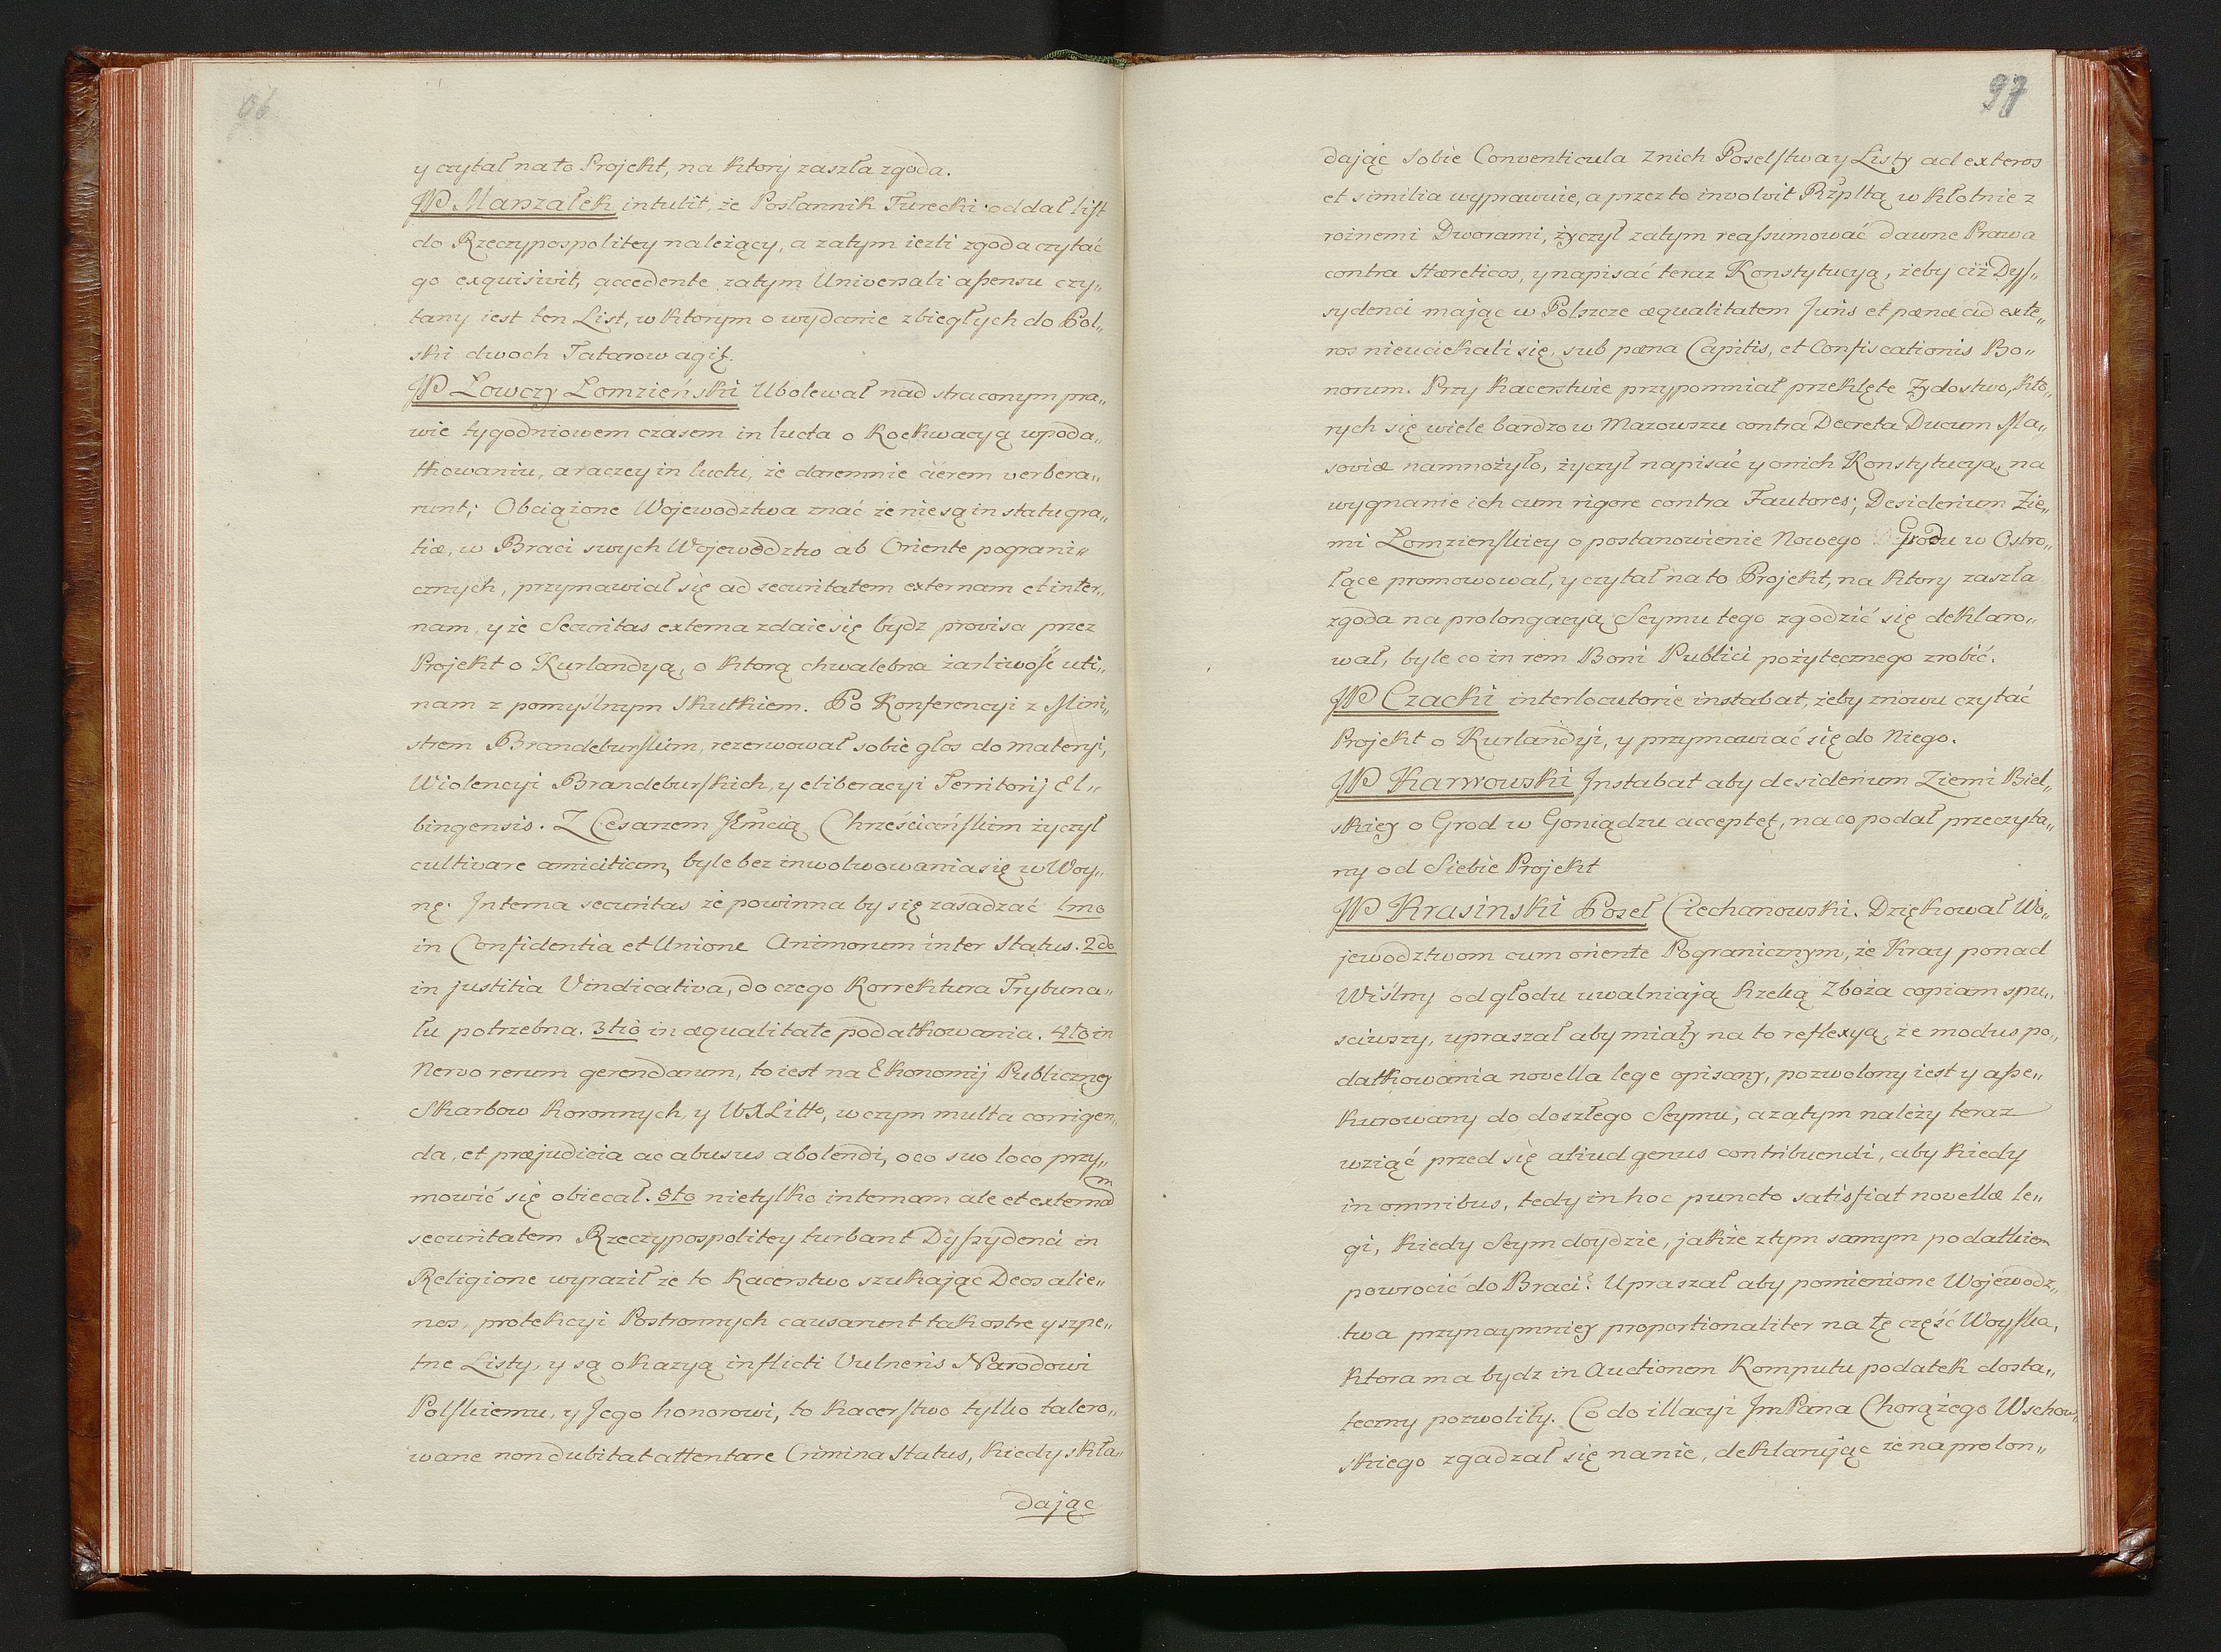 96
y czytał na to Projekt, na ktory zaszła zgoda.
JP Marszałek intulit, że Posłannik Turecki oddał list
do Rzeczypospolitey należący, a zatym ieżli zgoda czytać
go exquisivit, accedente zatym Universali assensu czy„
tany iest ten List, w ktorym o wydanie zbiegłych do Pol„
ski dwoch Tatarow agit.
JP Łowczy Łomzieński Ubolewał nad straconym pra„
wie tygodniowem czasem in lucta o Koekwacyą w poda„
tkowaniu, a raczey in luctu, że daremnie aërem verbera„
runt; Obciążone Wojewodztwa znać że nie są in statu gra„
tiæ, w Braci swych Wojewodztw ab Oriente pograni„
cznych, przymawiał się ad securitatem externam et inter„
nam, y że Securitas externa zdaie się bydz provisa przez
Projekt o Kurlandyą, o ktorą chwalebna żarliwość uti„
nam z pomyślnym Skutkiem. Po Konferencyi z Mini„
strem Brandeburskim, rezerwował sobie głos do materyi,
Wiolencyi Brandeburskich, y eliberacyi Territorij El„
bingensis. Z Cesarzem Jmcią Chrześciańskim życzył
cultivare amicitiam, byle bez inwolwowania się w Woy„
nę. Interna securitas że powinna by się zasadzać 1mo
in Confidentia et Unione Animorum inter Status. 2do
in justitia Vindicativa, do czego Korrektura Trybuna„
łu potrzebna. 3tio in æqualitate podatkowania. 4to in
Nervo rerum gerendarum, to iest na Ekonomij Publiczney
Skarbow Koronnych, y WXLitto, w czym multa corrigen„
da, et præjudicia ac abusus abolendi, o co suo loco przy„
mowić się obiecał. 5to nietylko internam ale et externam
securitatem Rzeczypospolitey turbant Dyssydenci in
Religione wyraził że to Kacerstwo szukając Deos alie„
nos, protekcyi Postronnych causarunt tak ostre y szpe„
tne Listy, y są okazyą inflicti Vulneris Narodowi
Polskiemu, y Jego honorowi, to Kacerstwo tylko tolero„
wane non dubitat attentare Crimina Status, kiedy skła„
dając
97
dając sobie Conventicula z nich Poselstwa y Listy ad exteros
et similia wyprawuie, a przez to involvit Rzpltą w Kłotnie z
rożnemi Dworami, życzył zatym reassumować dawne Prawa
contra Hæreticos, y napisać teraz Konstytucyą, żeby ciż Dys„
sydenci mając w Polszcze æqualitatem Juris et pænæ ad exte„
ros nieuciekali się, sub pæna Capitis, et Confiscationis Bo„
norum. Przy Kacerstwie przypomniał przeklęte Żydostwo, kto„
rych się wiele bardzo w Mazowszu contra Decreta Ducum Ma„
soviæ namnożyło, życzył napisać y o nich Konstytucyą, na
wygnanie ich cum rigore contra Fautores; Desiderium Zie„
mi Łomzienskiey o postanowienie Nowego Grodu w Ostro„
łące promowował, y czytał na to Projekt, na ktory zaszła
zgoda na prolongacyą Seymu tego zgodzić się deklaro„
wał, byle co in rem Boni Publici pożytecznego zrobić.
JP Czacki interlocutorie instabat, żeby znowu czytać
Projekt o Kurlandyi, y przymawiać się do Niego.
JP Karwowski Instabat aby desiderium Ziemi Biel„
skiey o Grod w Goniądzu acceptet, na co podał przeczyta„
ny od Siebie Projekt
JP Krasinski Poseł Ciechanowski. Dziękował Wo„
jewodztwom cum oriente Pogranicznym, że Kray ponad
Wiślny od głodu uwalniają Rzeką Zboża copiam spu„
sciwszy, upraszał aby miały na to reflexyą, że modus po„
datkowania novella lege opisany, pozwolony iest y asse„
kurowany do doszłego Seymu, a zatym należy teraz
wziąć przed się aliud genus contribuendi, aby kiedy
in omnibus, tedy in hoc puncto satisfiat novellæ le„
gi, kiedy Seym doydzie, jakże z tym samym podatkiem
powrocić do Braci? Upraszał aby pomienione Wojewodz„
twa przynaymniey proportionaliter na tę część Woyska,
ktora ma bydz in Auctionem Komputu podatek dosta„
teczny pozwoliły. Co do illacyi Jm Pana Chorążego Wschow„
skiego zgadzał się na nie, deklarując że na prolon„